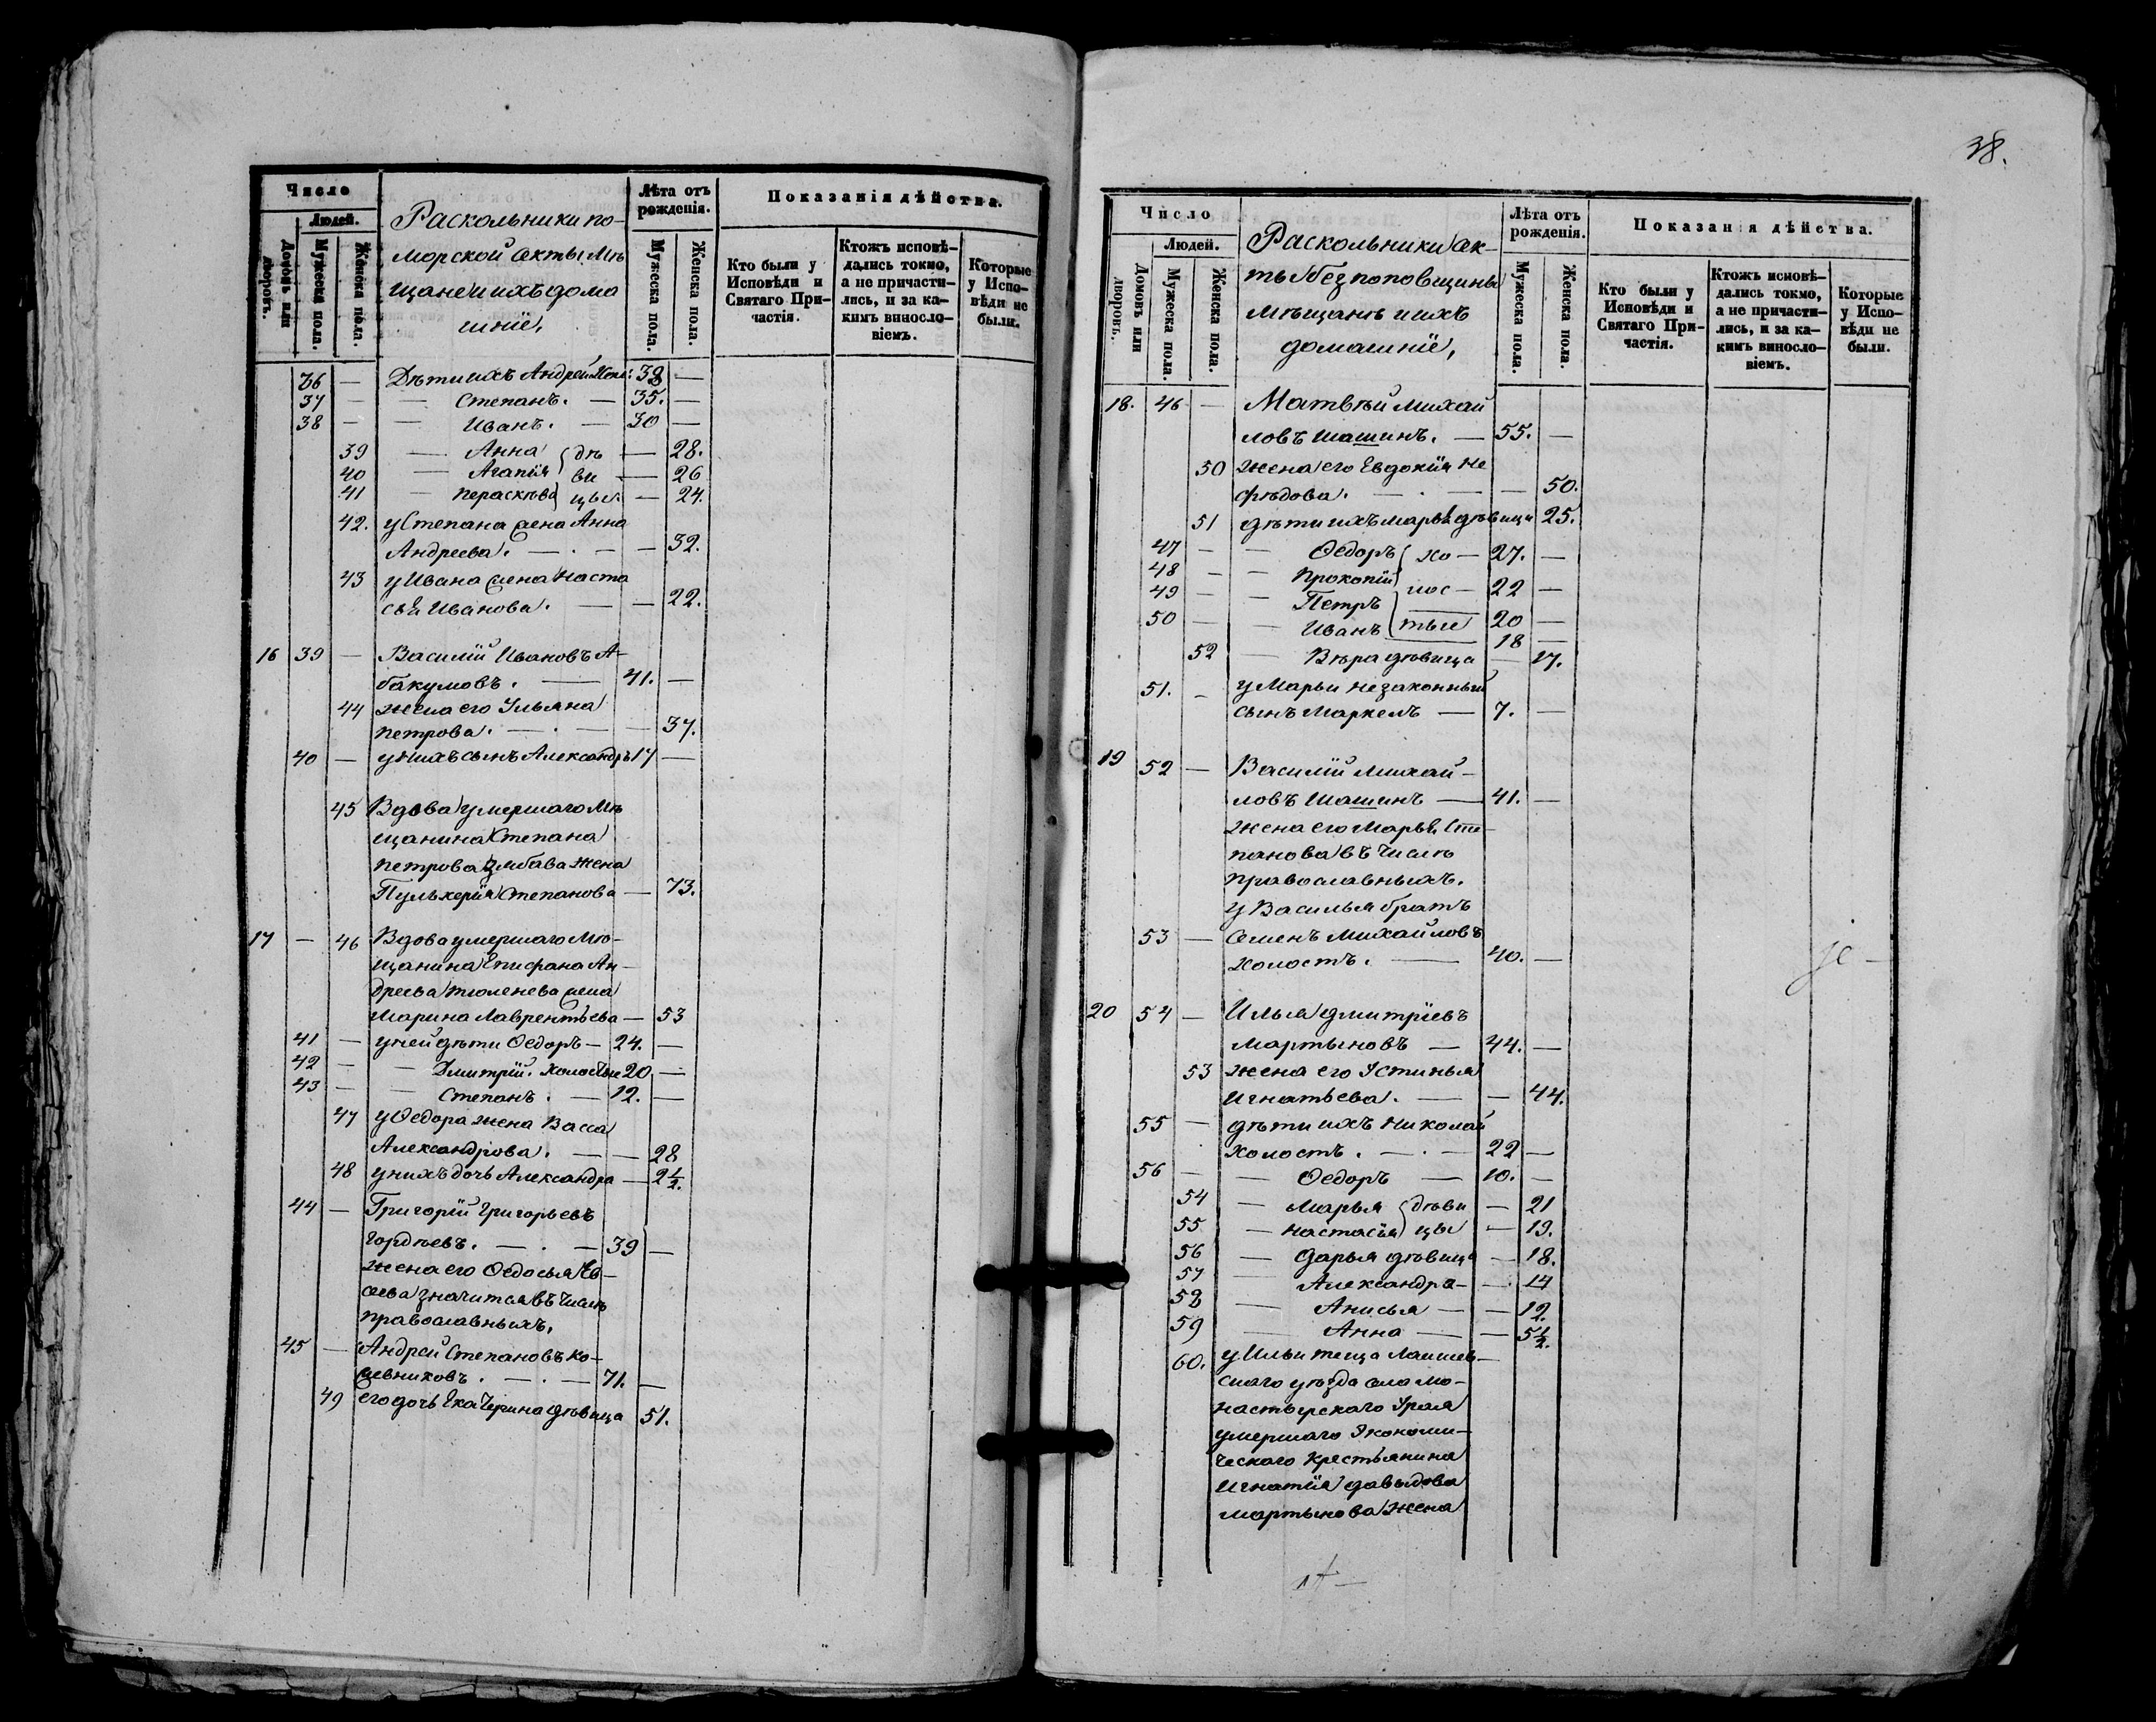 Число
Людей.
Домовъ или дворовъ.
Мужеска пола.
Женска пола.
Раскольники по-
морской секты. Мѣ
щане и ихъ дома
шніе.
Лѣта отъ рожденія.
Мужеска пола.
Женска пола.
Показанія дѣйства.
Кто были у Исповѣди и Святаго При-частія.
Ктожъ исповѣ-дались токмо, а не причасти-лись, и за ка-кимъ винослo-віемъ.
Которые у Испо-вѣди не были.
36 — Дѣти ихъ Андрей 38 —
37 — — Степанъ. — 35. —
38 — — Иванъ. — 30 —
39 — Анна дѣ — 28.
40 — Агапія ви — 26
41 — Пераскѣва цы. — 24.
42. у Степана жена Анна
Андреева. — . — — 32.
43 у Ивана жена Наста
сья Иванова. — — 22.
16 39 — Василій Ивановъ А-
бакумовъ. — 41. —
44 жена его Ульяна
Петрова. — . — — 37.
40 — у нихъ сынъ Александръ 17 —
45 Вдова умершаго Мѣ
щанина Степана
Петрова жена
Пульхерія Степанова — 73.
17 — 46 Вдова умершаго Мѣ-
щанина Епифана Ан-
дреева Тюленева жена
Марина Лаврентьева — 53
41 — у ней дѣти Ѳедоръ — 24. —
42 — — Дмитрій. холостые 20 —
43 — — Степанъ. — 12. —
47 у Ѳедора жена Васса
Александрова. — — 28
48 у нихъ дочь Александра — 2½.
44 — Григорій Григорьевъ
Гордѣевъ. — . — 39 —
жена его Ѳедосья Ев-
сева значится въ числѣ
православныхъ.
45 — Андрей Степановъ Ко-
жевниковъ. — . — 71. —
49 его дочь Екатерина дѣвица 51.
38.
Число
Людей.
Домовъ или дворовъ.
Мужеска пола.
Женска пола.
Раскольники сек-
ты безпоповщины
мѣщанѣ и ихъ
домашніе,
Лѣта отъ рожденія.
Мужеска пола.
Женска пола.
Показанія дѣйства.
Кто были у Исповѣди и Святаго При-частія.
Ктожъ исповѣ-дались токмо, а не причасти-лись, и за ка-кимъ винослo-віемъ.
Которые у Испо-вѣди не были.
18. 46 — Матвѣй Михай
ловъ Шашинъ. — 55. —
50 жена его Евдокія Не
фѣдова. — . — — 50.
51 дѣти ихъ Марья дѣвица 25.
47 — — Ѳедоръ хо — 27. —
48 — — Прокопій лос — 22 —
49 — — Петръ тые 20 —
50 — — Иванъ 18 —
52 — Вѣра дѣвица — 17.
51. — у Марьи незаконный
сынъ Маркелъ — 7. —
19 52 — Василій Михай-
ловъ Шашинъ — 41. —
жена его Марья Сте-
панова въ числѣ
православныхъ.
у Василья братъ
53 — Семенъ Михайловъ
холостъ. — 40. —
20 54 — Илья Дмитріевъ
Мартыновъ — 44. —
53 жена его Устинья
Игнатьева. — — 44.
55 — дѣти ихъ Николай
холостъ. — . — 22 —
56 — — Ѳедоръ — 10. —
54 — Марья дѣви — 21
55 — Настасія цы — 19.
56 — Дарья дѣвица — 18.
57 — Александра — — 14
58 — Анисья — — 12.
59 — Анна — — 5½.
60. у Ильи теща Лаишев-
скаго уѣзда села Мо-
настырскаго Урая
умершаго Экономи-
ческаго крестьянина
Игнатія Давыдова
Мартынова жена